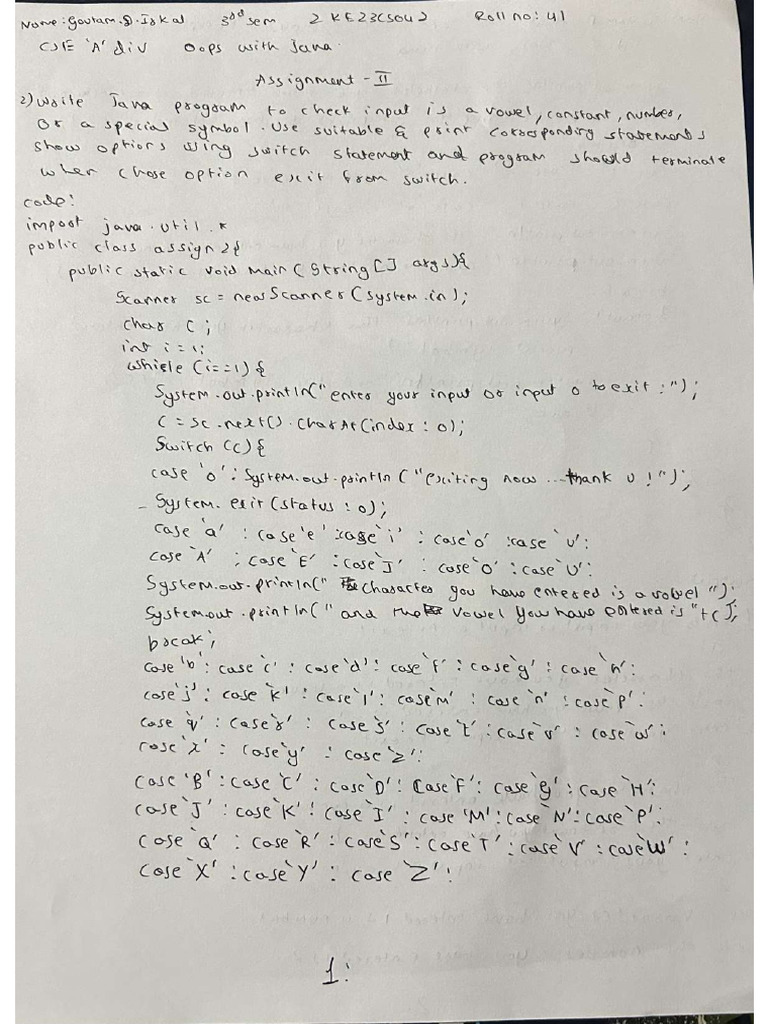 Name: Goutam.D.Iskal 3rd sem 2KE23CS042 Roll no: 41
CSE 'A' div Oops with Java.
Assignment - II
2) Write Java program to check input is a vowel, constant, number,
or a special symbol. Use suitable & print corresponding statements
show options using switch statement and program should terminate
when chose option exit from switch.
code:
import java.util.*
public class assign2{
public static void main(String[] args){
Scanner sc = new Scanner(System.in);
char c;
int i = 1;
while (i==1) {
System.out.println("enter your input or input 0 to exit :");
c = sc.next().charAt(index : 0);
Switch (c) {
case '0': System.out.println ("exciting now ... thank u !");
- System.exit(status : 0);
case 'a' : case 'e' : case 'i' : case 'o' : case 'u':
case 'A' : case 'E' : case 'I' : case 'O' : case 'U':
System.out.println(" Character you have entered is a vowel ");
System.out.println(" and the vowel you have entered is "+c);
break;
case 'b': case 'c' : case 'd': case 'f' : case 'g' : case 'h':
case 'j': case 'k' : case 'l' : case 'm' : case 'n' : case 'p':
case 'q' : case 'r' : case 's' : case 't' : case 'v' : case 'w':
case 'x' : case 'y' : case 'z':
case 'B' : case 'C' : case 'D': Case 'F': case 'g' : case 'H':
case 'J' : case 'K' : case 'I' : case 'M': case 'N': case 'P':
case 'Q' : case 'R' : case 'S' : case 'T' : case 'V' : case 'W' :
case 'X' : case 'Y' : case 'Z':
1: